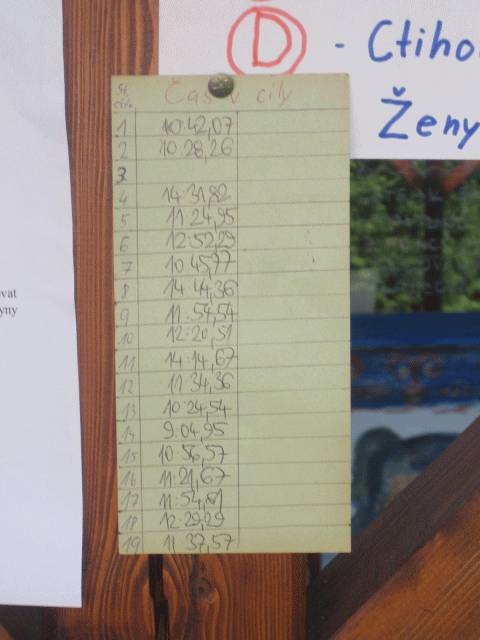 D - Ctiho
Ženy
vat
yny
St. čís. Čas v cíly
1 10:42,07
2 10:28,26
3
4 14:31,82
5 11:24,95
6 12:52,29
7 10:45,77
8 14:44,36
9 11:54,54
10 12:20,51
11 14:14,67
12 11:34,36
13 10:24,54
14 9:04,95
15 10:56,57
16 11:21,67
17 11:54,81
18 12:29,29
19 11:37,57